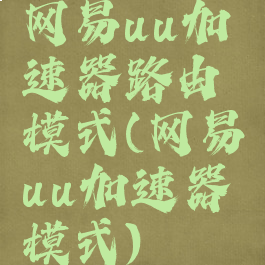 网易uu加
速器路由
模式(网易
uu加速器
模式)